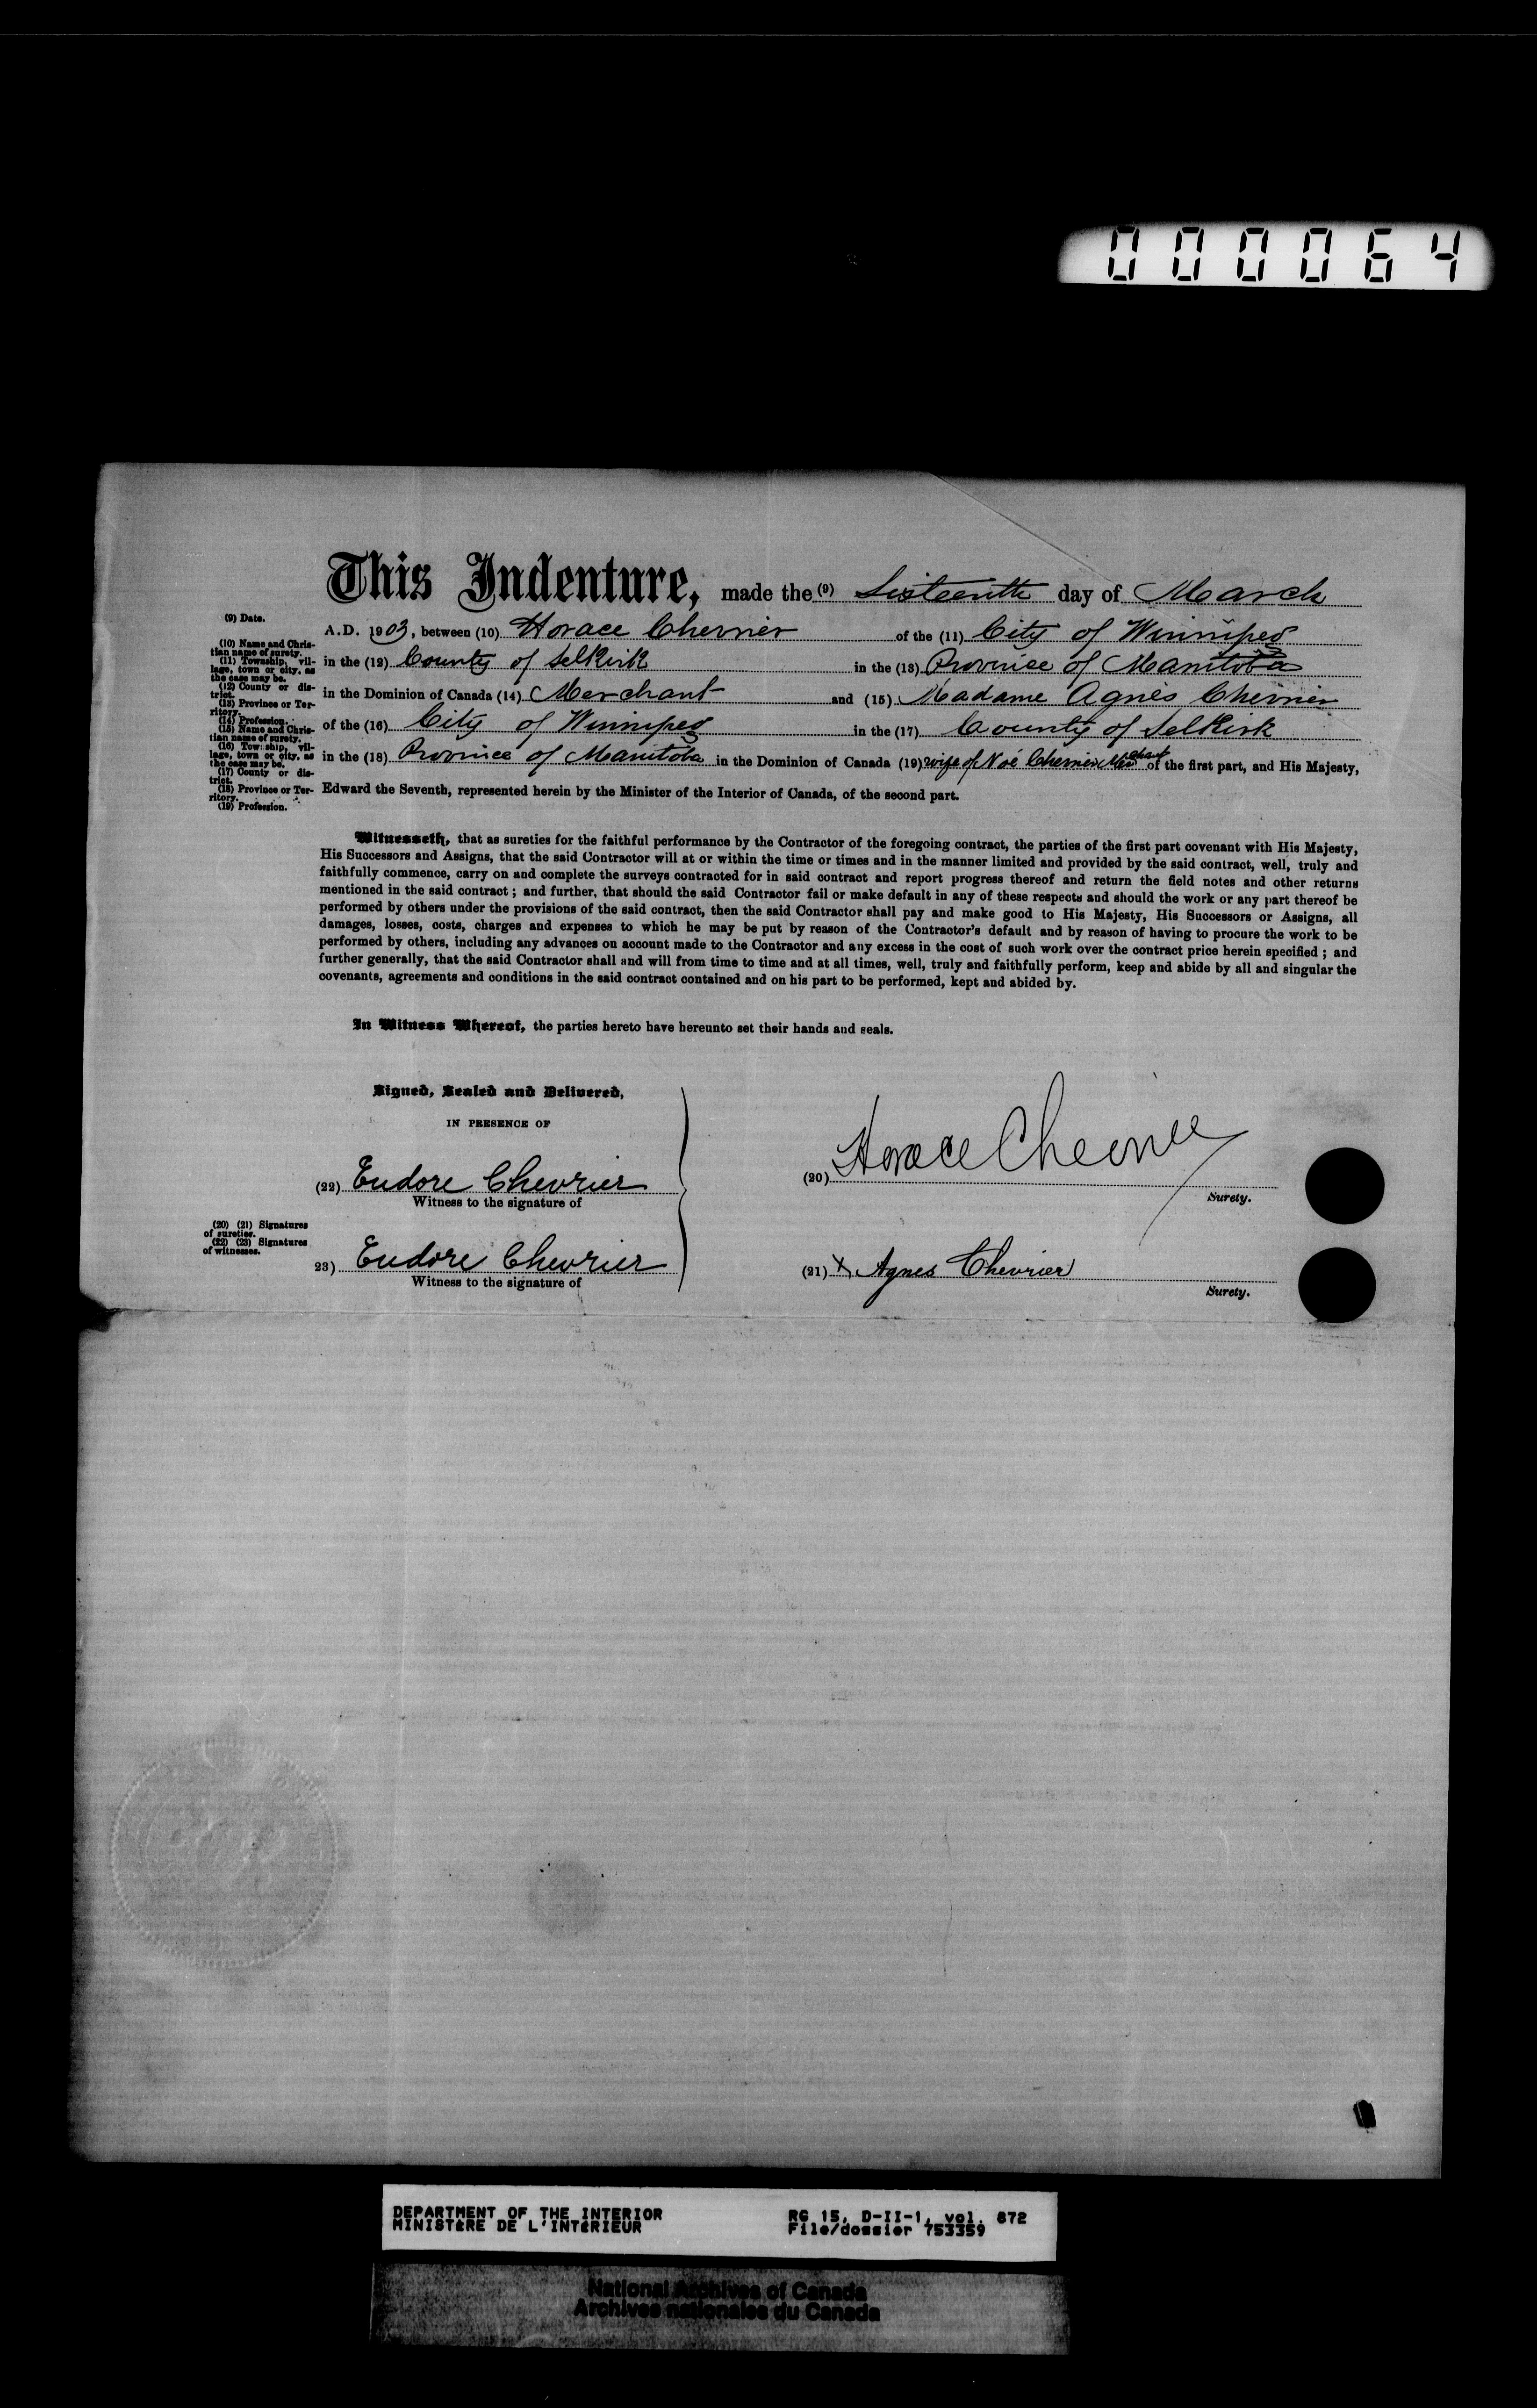 000064
This Indenture, made the (9) Sixteenth day of March
A.D. 1903, between (10) Horace Chevrier of the (11) City of Winnipeg
in the (12) County of Selkirk in the (13) Province of Manitoba
in the Dominion of Canada (14) Merchant and (15) Madame Agnès Chevrier
of the (16) City of Winnipeg in the (17) County of Selkirk
in the (18) Province of Manitoba in the Dominion of Canada (19) wife of Noé Chevrier Merchant of the first part, and His Majesty,
Edward the Seventh, represented herein by the Minister of the Interior of Canada, of the second part.
(9) Date.
(10) Name and Chris-
tian name of surety.
(11) Township, vil-
lage, town or city, as
the case may be.
(12) County or dis-
trict.
(13) Province or Ter-
ritory.
(14) Profession.
(15) Name and Chris-
tian name of surety.
(16) Township, vil-
lage, town or city, as
the case may be.
(17) County or dis-
trict.
(18) Province or Ter-
ritory.
(19) Profession.
Witnesseth, that as sureties for the faithful performance by the Contractor of the foregoing contract, the parties of the first part covenant with His Majesty,
His Successors and Assigns, that the said Contractor will at or within the time or times and in the manner limited and provided by the said contract, well, truly and
faithfully commence, carry on and complete the surveys contracted for in said contract and report progress thereof and return the field notes and other returns
mentioned in the said contract ; and further, that should the said Contractor fail or make default in any of these respects and should the work or any part thereof be
performed by others under the provisions of the said contract, then the said Contractor shall pay and make good to His Majesty, His Successors or Assigns, all
damages, losses, costs, charges and expenses to which he may be put by reason of the Contractor's default and by reason of having to procure the work to be
performed by others, including any advances on account made to the Contractor and any excess in the cost of such work over the contract price herein specified ; and
further generally, that the said Contractor shall and will from time to time and at all times, well, truly and faithfully perform, keep and abide by all and singular the
covenants, agreements and conditions in the said contract contained and on his part to be performed, kept and abided by.
In Witness Whereof, the parties hereto have hereunto set their hands and seals.
Signed, Sealed and Delivered,
IN PRESENCE OF
(22) Eudore Chevrier
Witness to the signature of
(20) Horace Chevrier
Surety.
(20) (21) Signatures
of sureties.
(22) (23) Signatures
of witnesses.
23) Eudore Chevrier
Witness to the signature of
(21) x Agnes Chevrier
Surety.
DEPARTMENT OF THE INTERIOR RG 15, D-II-1, vol. 872
MINISTÈRE DE L'INTÉRIEUR File/dossier 753359
National Archives of Canada
Archives nationales du Canada